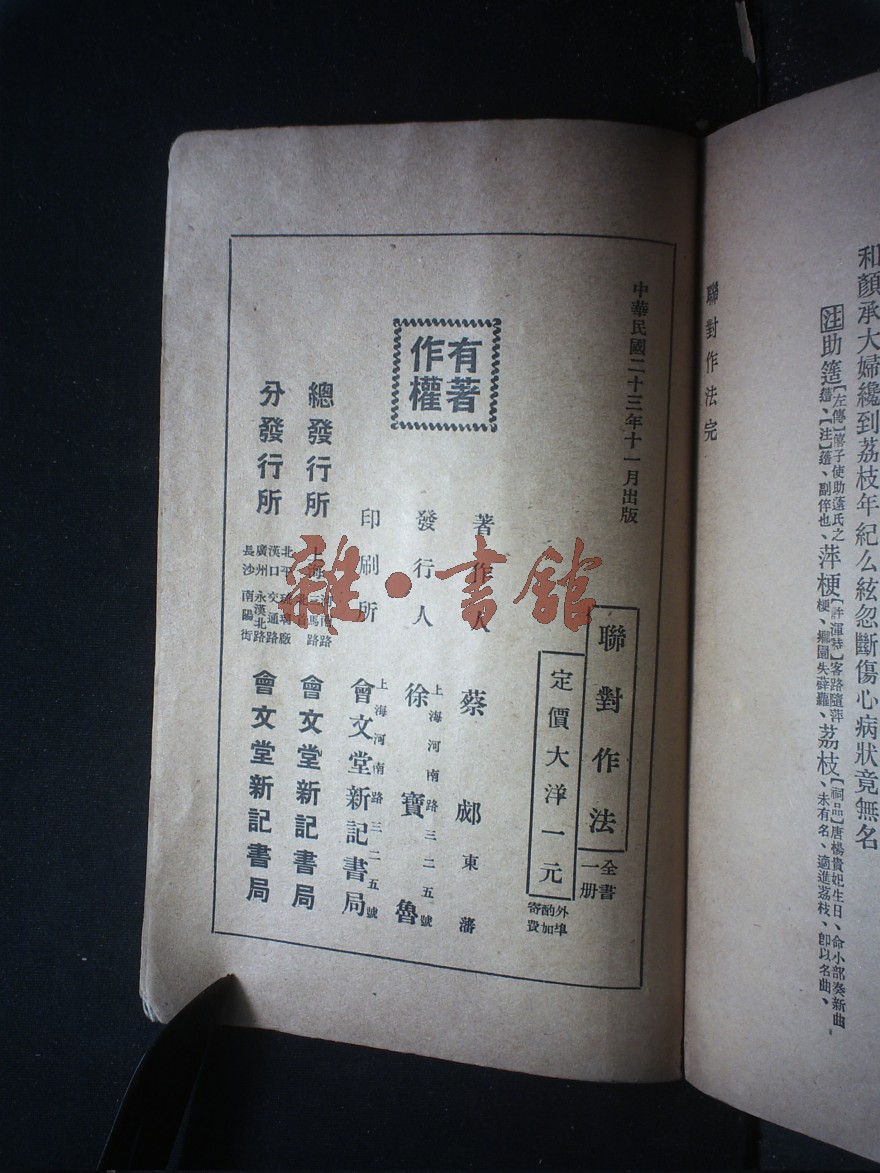 和顏承大婦纔到荔枝年紀么絃忽斷傷心病狀竟無名
注助簉【左傳】僖子使助薳氏之
簉、【注】簉、副倅也、萍梗【許渾詩】客路隨萍
梗、鄉園失薜蘿、荔枝【祠品】唐楊貴妃生日、命小部奏新曲
未有名、適進荔枝、卽以名曲、
聯對作法完
中華民國二十三年十一月出版
聯對作法
全書
一册
定價大洋一元
外埠
酌加
寄費
有著
作權
著作人 蔡郕東藩
發行人 上海河南路三二五號
徐寶魯
印刷所 上海河南路三二五號
會文堂新記書局
總發行所 上海 河南路
會文堂新記書局
分發行所
北平 琉璃廠
漢口 交通路
廣州 永漢北路
長沙 南陽街
會文堂新記書局
雜·書館